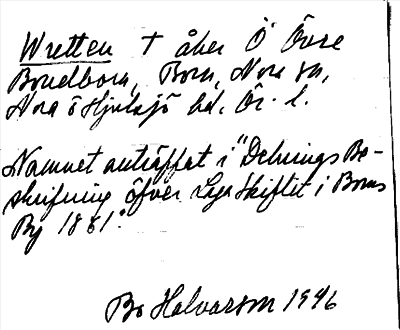 Wretten + åker Ö Övre
Bondborn, Born, Nora sn,
Nora o Hjulsjö hd, Ör. l.
Namnet anträffat i "Delnings Be-
skrifning öfver Laga Skiftet i Borns
By 1881."
Bo Halvarson 1946